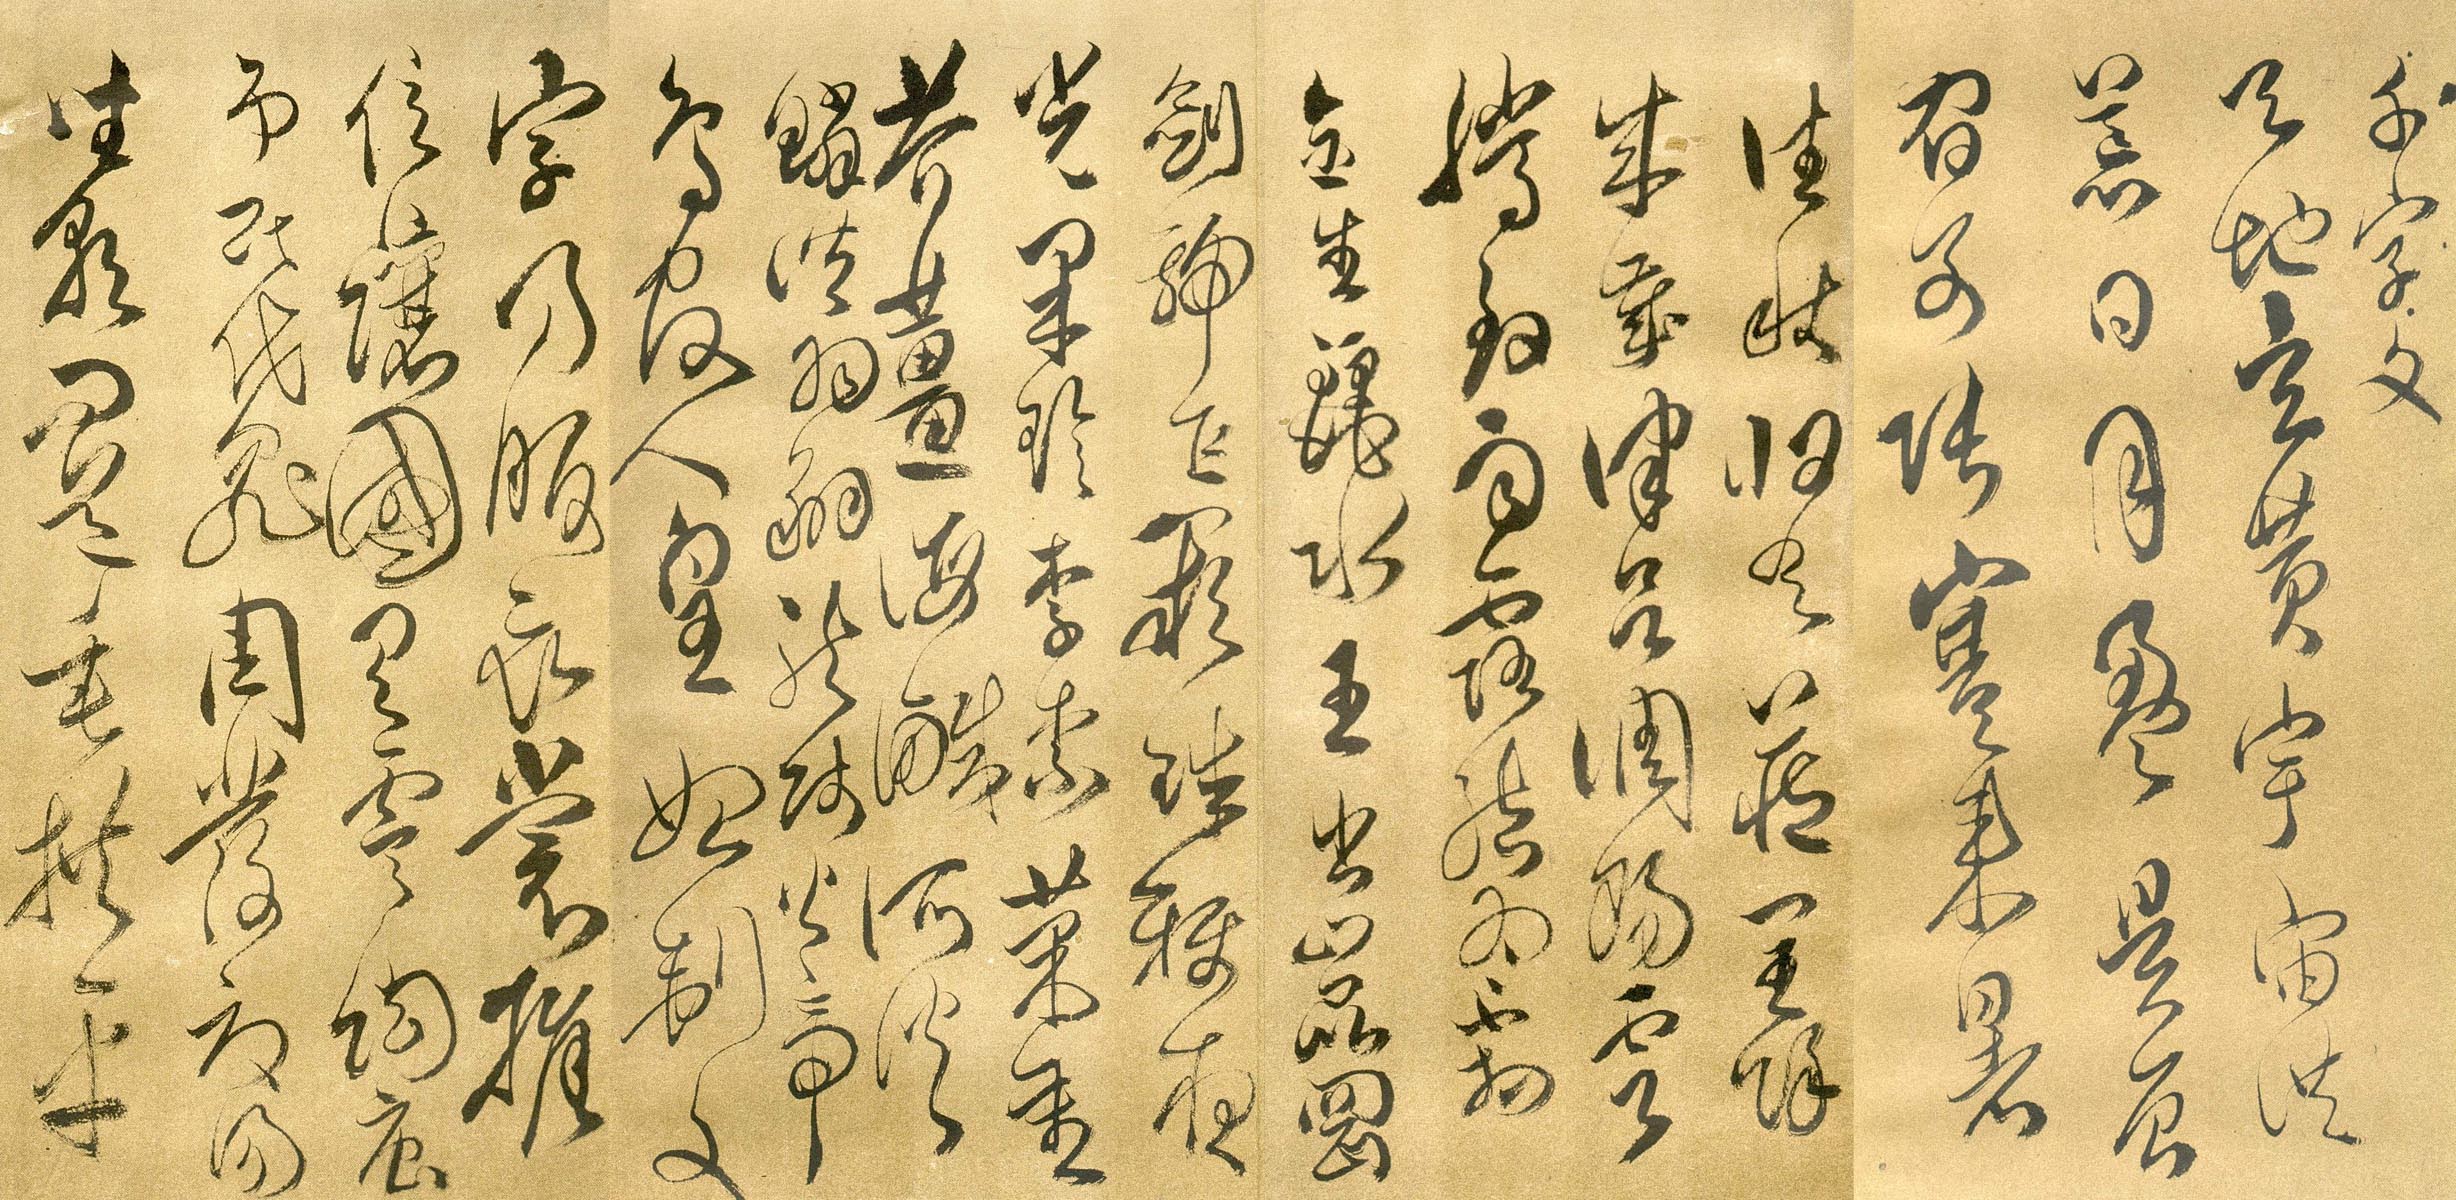 千字文
天地玄黃宇宙洪
荒日月盈昃辰
宿列張寒來暑
往秋收冬藏閏餘
成歲律呂調陽雲
騰致雨露結為霜
金生麗水玉出崑岡
劍號巨闕珠稱夜
光果珍李柰菜重
芥薑海鹹河淡
鱗潛羽翔龍師火帝
鳥官人皇始制文
字乃服衣裳推
位讓國有虞陶唐
弔民伐罪周發殷湯
坐朝問道垂拱平